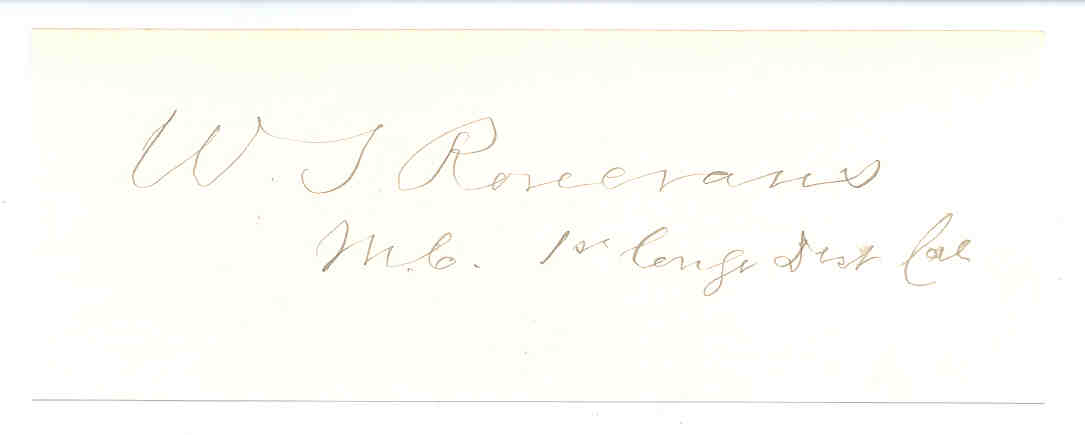 W. S. Rosecrans
M.C. 1st Congr Dist Cal